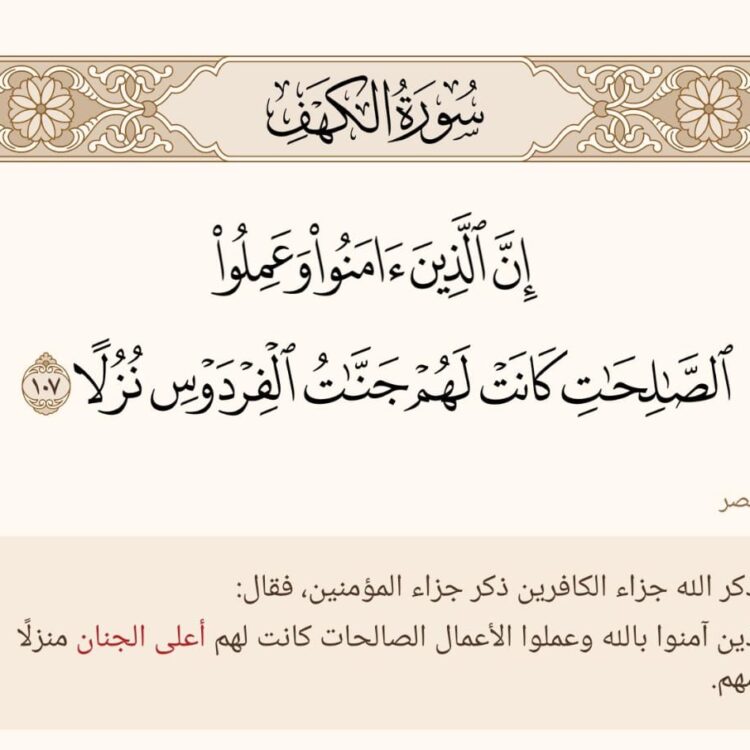 سُورَةُ الكَهْفِ
إِنَّ ٱلَّذِينَ ءَامَنُوا۟ وَعَمِلُوا۟
ٱلصَّـٰلِحَـٰتِ كَانَتْ لَهُمْ جَنَّـٰتُ ٱلْفِرْدَوْسِ نُزُلًا ١٠٧
ذكر الله جزاء الكافرين ذكر جزاء المؤمنين، فقال:
آمنوا بالله وعملوا الأعمال الصالحات كانت لهم أعلى الجنان منزلًا